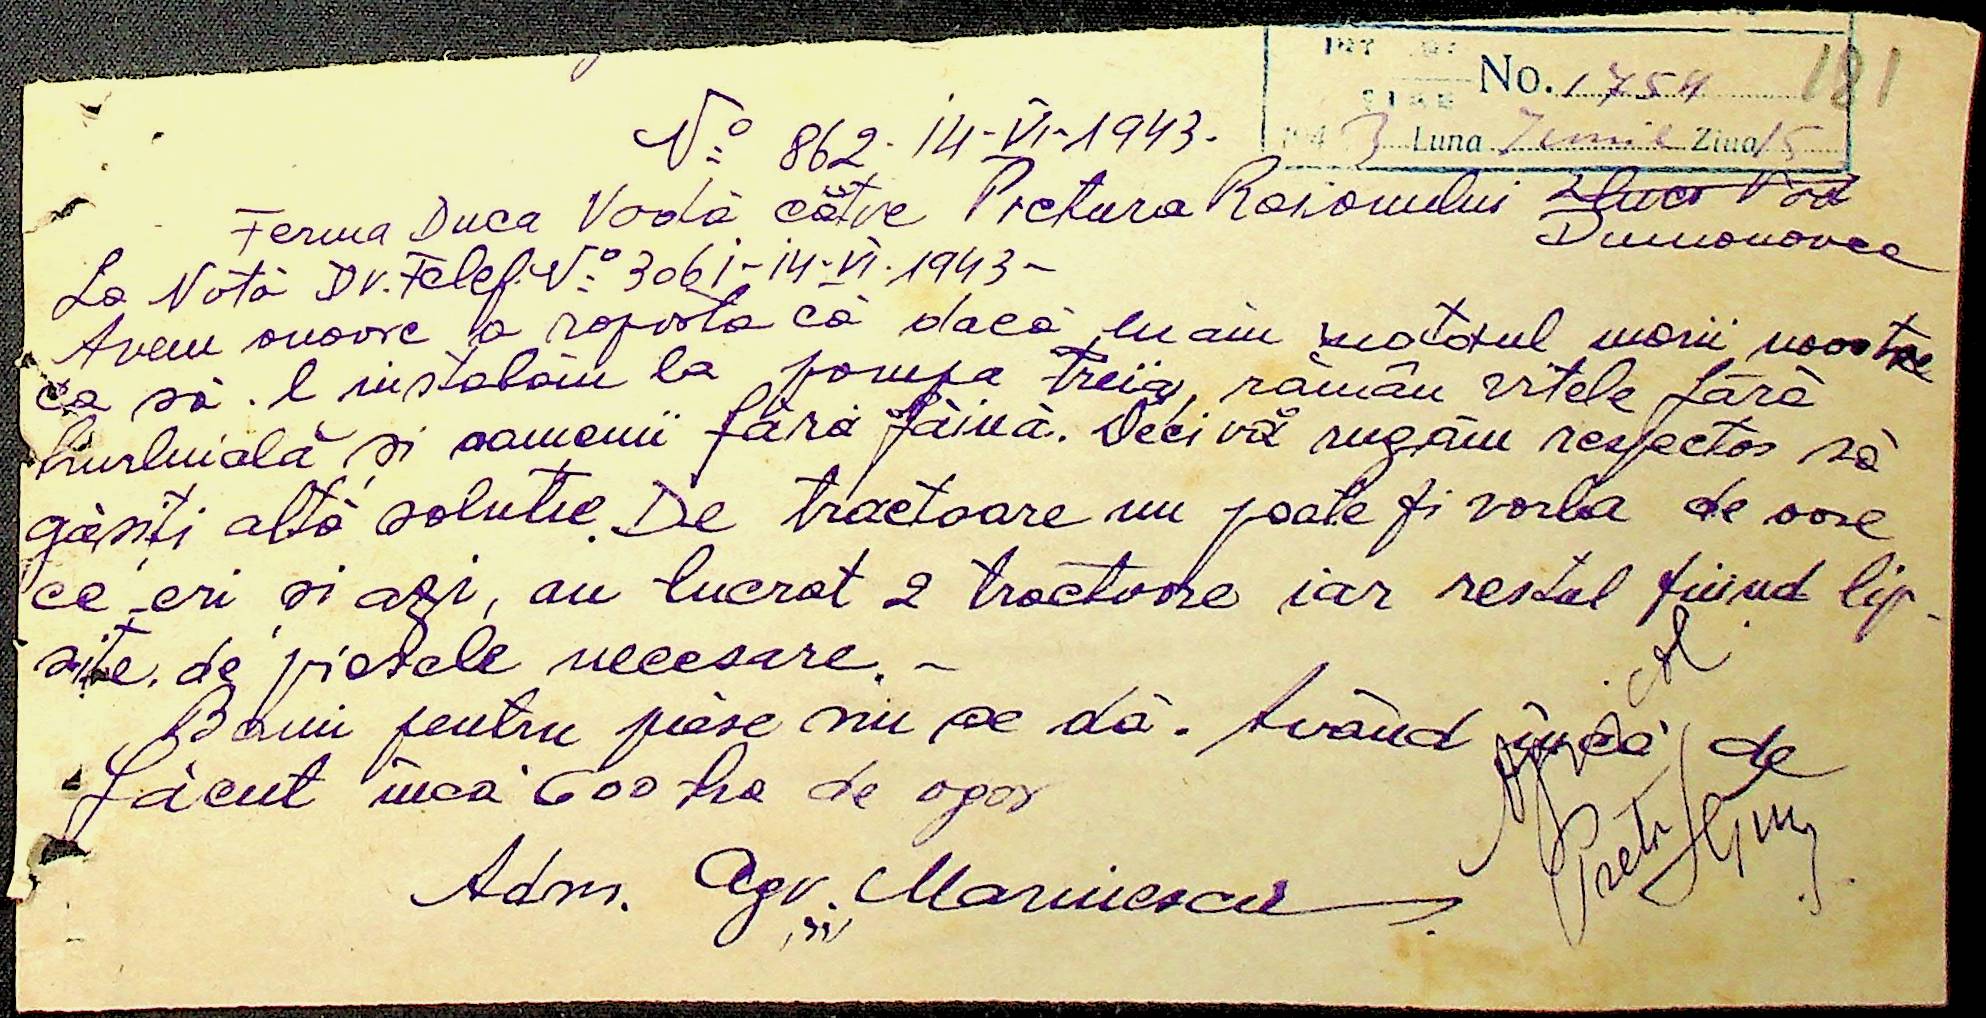 No. 1754
181
1943 Luna Iunie Ziua 15
No 862. 14-VI-1943.
Ferma Duca Vodă cătve Pretura Raionului Duca Vod
Dumanovca
La Nota Dv. Telef. No 3061-14-VI.1943-
Avem onoare a raporta că dacă luăm motorul morii noastre
ca să-l instalăm la pompa treia, rămân vitele fără
hurluială și oamenii fără făină. Deci vă rugăm respectos să
găsiți altă soluție. De tractoare nu poate fi vorba de oare
ce eri și azi, au lucrat 2 tractoare iar restul fiind lip-
site de piesele necesare. -
Bani pentru piese nu se dă. Având încă de
făcut încă 600 ha de ogor
Adm. Agr. Marinescu
Agricol
Pretor